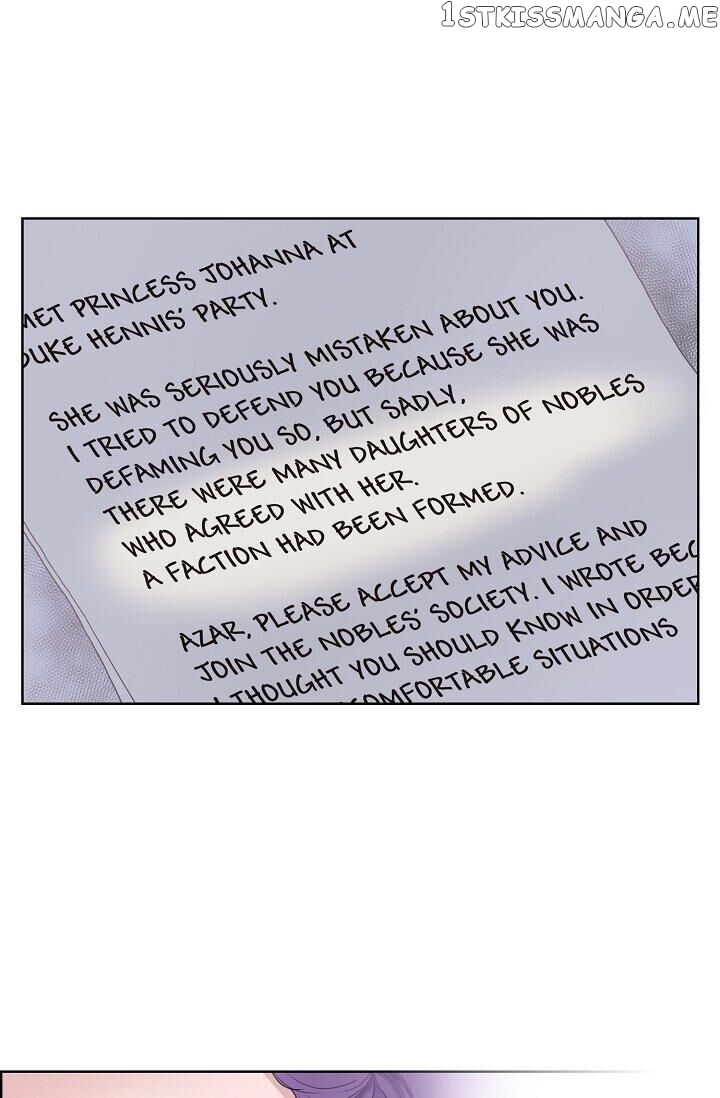 1STKISSMANGA.ME
MET PRINCESS JOHANNA AT
DUKE HENNIS' PARTY.
SHE WAS SERIOUSLY MISTAKEN ABOUT YOU.
I TRIED TO DEFEND YOU BECAUSE SHE WAS
DEFAMING YOU SO, BUT SADLY,
THERE WERE MANY DAUGHTERS OF NOBLES
WHO AGREED WITH HER.
A FACTION HAD BEEN FORMED.
AZAR, PLEASE ACCEPT MY ADVICE AND
JOIN THE NOBLES' SOCIETY. I WROTE BEC
I THOUGHT YOU SHOULD KNOW IN ORDER
COMFORTABLE SITUATIONS